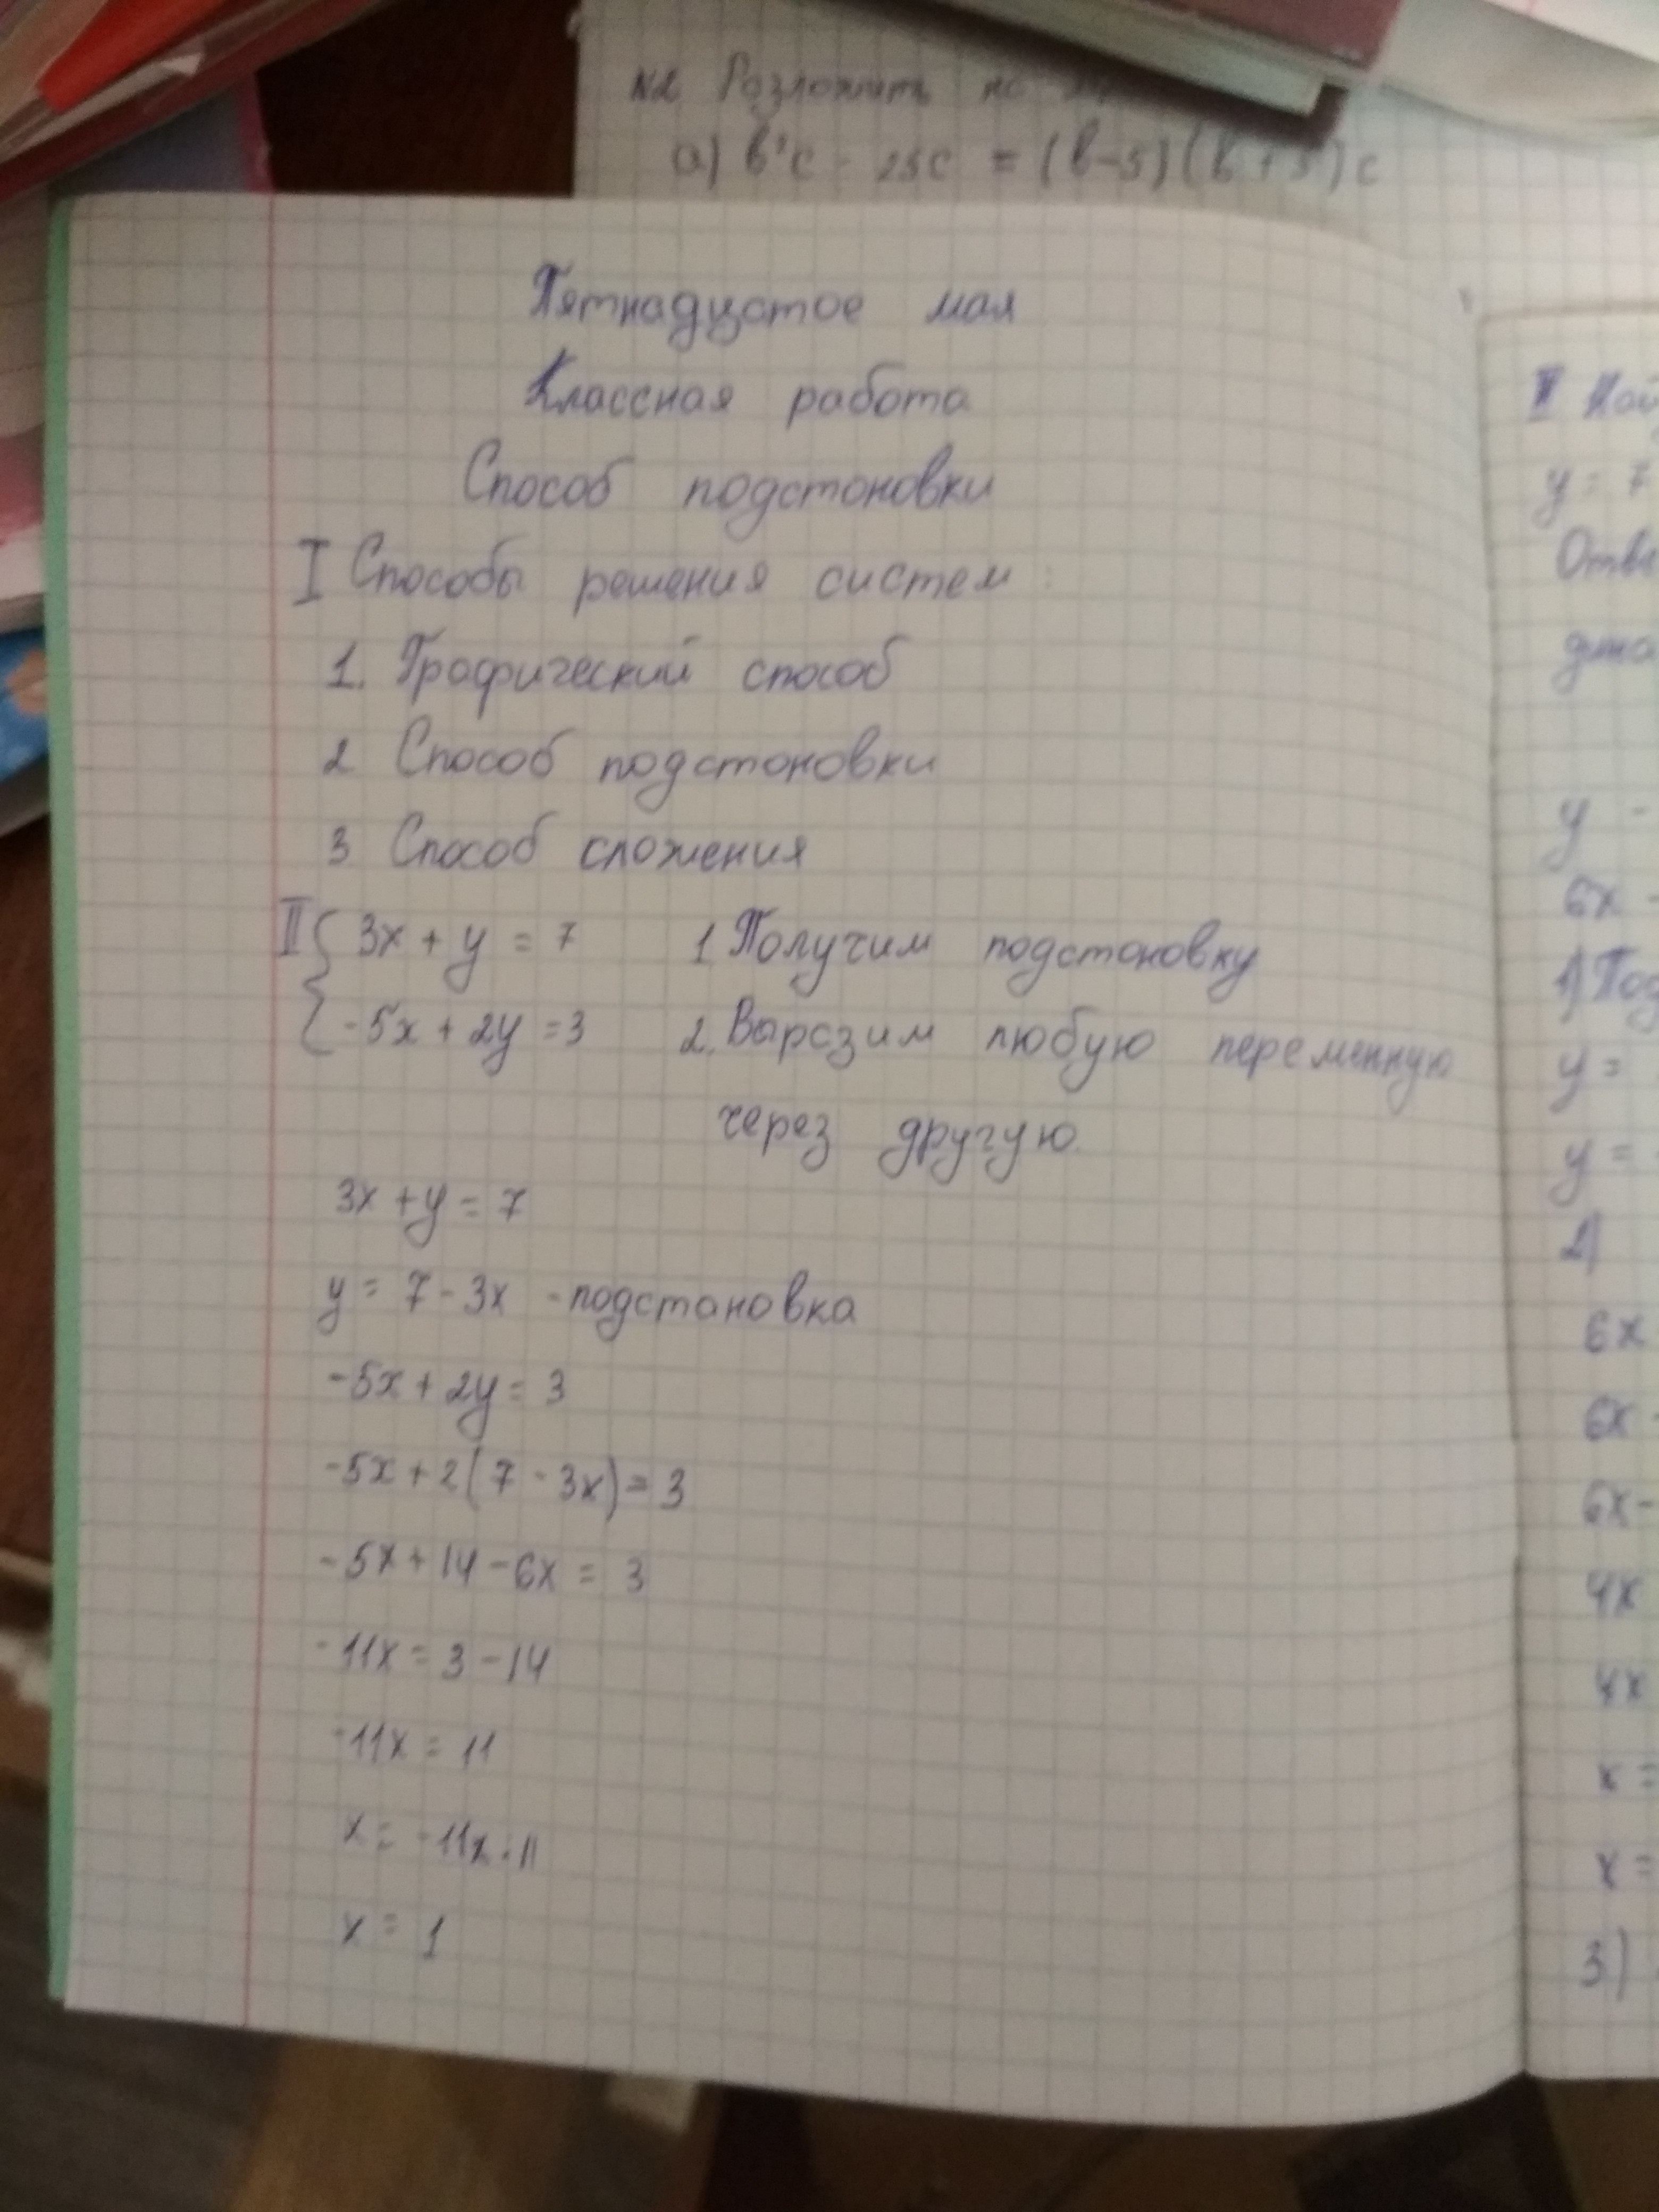 №2 Розложить
а) b²c - 25c = (b-5)(b+5)c
Пятнадцатое мая
Классная работа
Способ подстоновки
I Способы решения систем:
1. Графический способ
2 Способ подстоновки
3 Способ сложения
II { 3x + y = 7 1 Получим подстоновку
-5x + 2y = 3 2. Выразим любую переменную
через другую.
3x + y = 7
y = 7 - 3x - подстановка
-5x + 2y = 3
-5x + 2(7 - 3x) = 3
-5x + 14 - 6x = 3
-11x = 3 - 14
-11x = 11
x = -11x : 11
x = 1
y = 7
y -
6x -
1)
y =
y =
2)
6x
6x -
6x -
4x
4x
x =
x =
3)